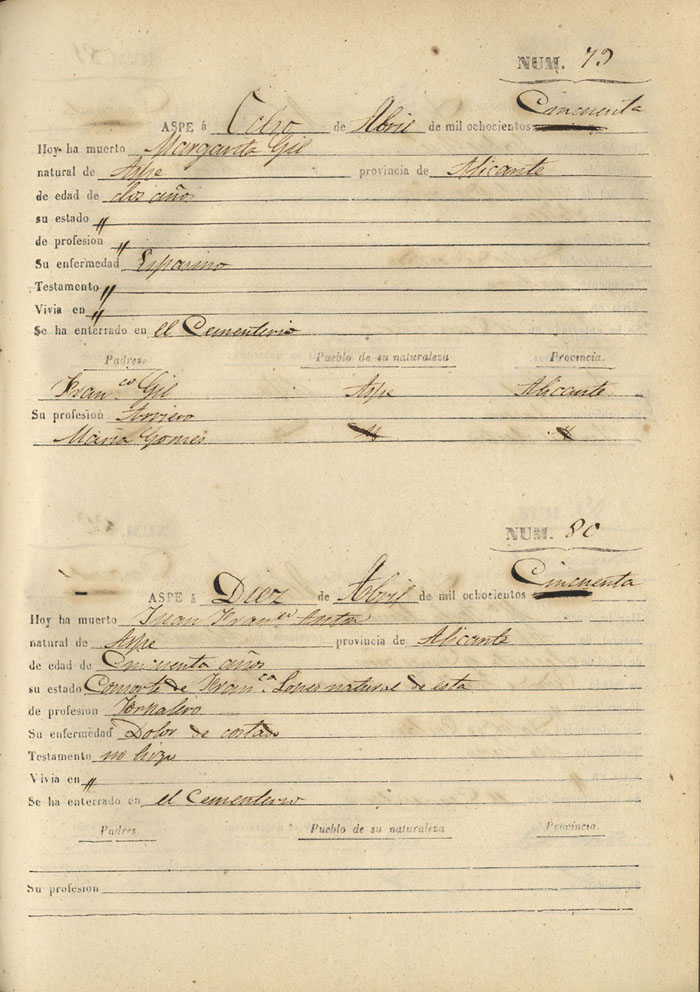 NUM. 79
Cincuenta
ASPE á Ocho de Abril de mil ochocientos
Hoy ha muerto Margarita Gil
natural de Aspe provincia de Alicante
de edad de dos años
su estado "
de profesion "
Su enfermedad Espasmo
Testamento "
Vivia en "
Se ha enterrado en el Cementerio
Padres. Pueblo de su naturaleza Provincia.
Fran.co Gil Aspe Alicante
Su profesion Arriero
Maria Gomes
NUM. 80
Cincuenta
ASPE á Diez de Abril de mil ochocientos
Hoy ha muerto Juan Fran.co
natural de Aspe provincia de Alicante
de edad de Cincuenta años
su estado Consorte de Fran.ca Lopes natural de esta
de profesion Jornalero
Su enfermedad Dolor de costado
Testamento no hizo
Vivia en "
Se ha enterrado en el Cementerio
Padres. Pueblo de su naturaleza Provincia.
Su profesion